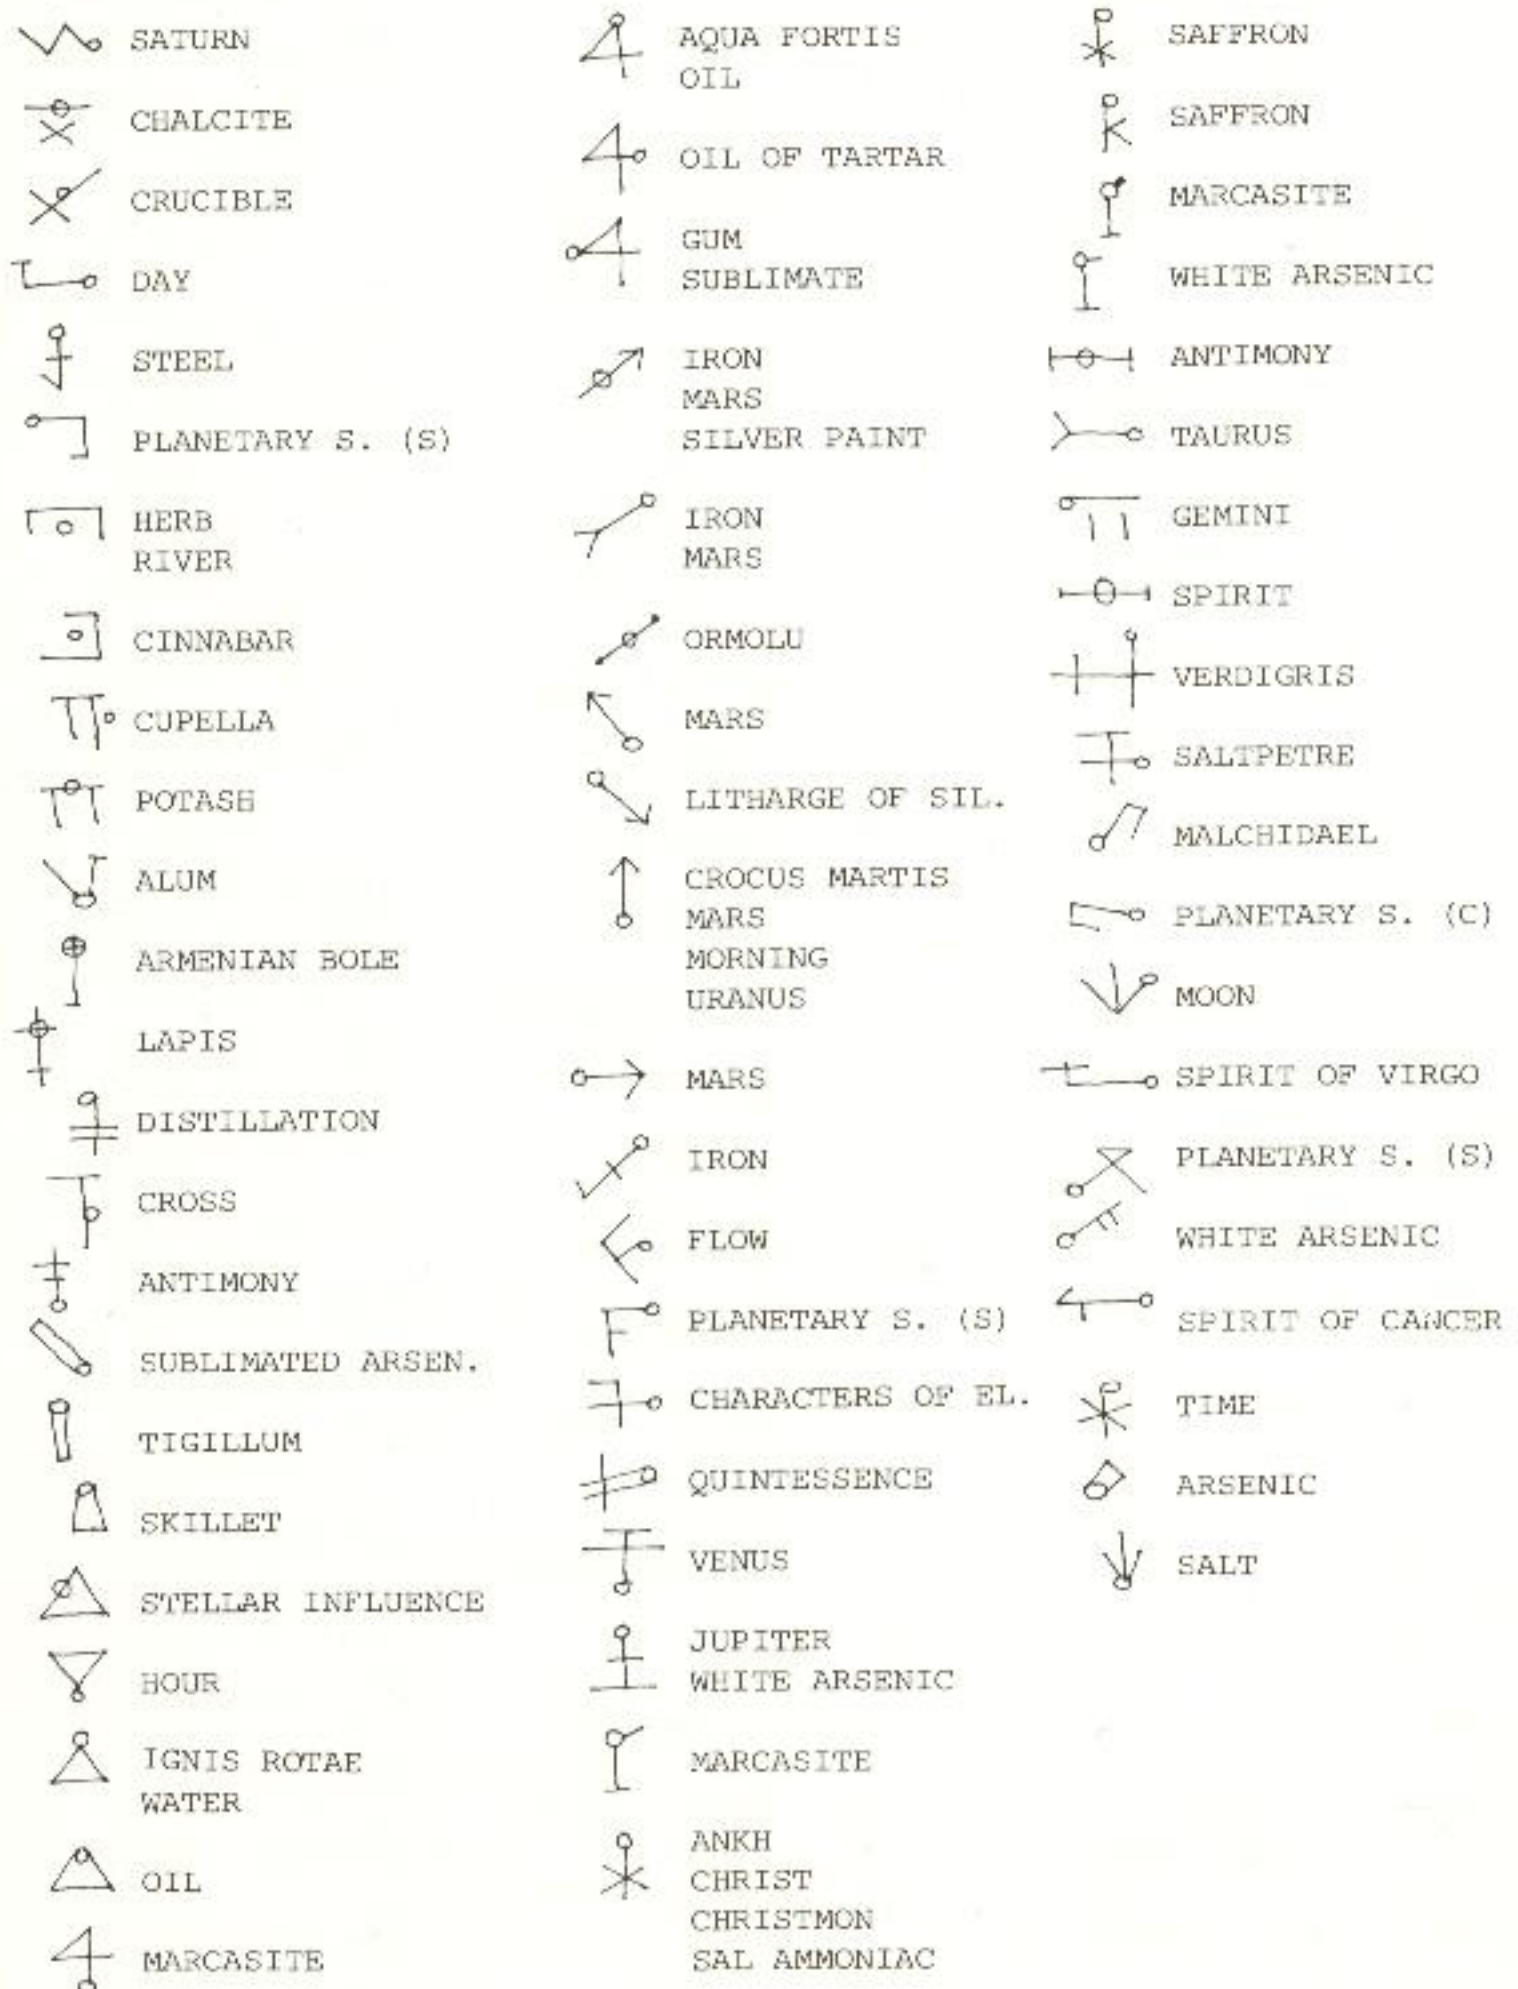 SATURN
CHALCITE
CRUCIBLE
DAY
STEEL
PLANETARY S. (S)
HERB
RIVER
CINNABAR
CUPELLA
POTASH
ALUM
ARMENIAN BOLE
LAPIS
DISTILLATION
CROSS
ANTIMONY
SUBLIMATED ARSEN.
TIGILLUM
SKILLET
STELLAR INFLUENCE
HOUR
IGNIS ROTAE
WATER
OIL
MARCASITE
AQUA FORTIS
OIL
OIL OF TARTAR
GUM
SUBLIMATE
IRON
MARS
SILVER PAINT
IRON
MARS
ORMOLU
MARS
LITHARGE OF SIL.
CROCUS MARTIS
MARS
MORNING
URANUS
MARS
IRON
FLOW
PLANETARY S. (S)
CHARACTERS OF EL.
QUINTESSENCE
VENUS
JUPITER
WHITE ARSENIC
MARCASITE
ANKH
CHRIST
CHRISTMON
SAL AMMONIAC
SAFFRON
SAFFRON
MARCASITE
WHITE ARSENIC
ANTIMONY
TAURUS
GEMINI
SPIRIT
VERDIGRIS
SALTPETRE
MALCHIDAEL
PLANETARY S. (C)
MOON
SPIRIT OF VIRGO
PLANETARY S. (S)
WHITE ARSENIC
SPIRIT OF CANCER
TIME
ARSENIC
SALT